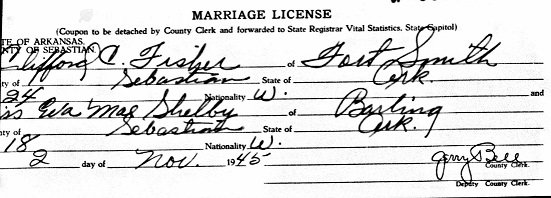 MARRIAGE LICENSE
(Coupon to be detached by County Clerk and forwarded to State Registrar Vital Statistics, State Capitol)
TE OF ARKANSAS,
NTY OF SEBASTIAN
Clifford C. Fisher of Fort Smith
ty of Sebastian State of Ark.
24 Nationality W. and
iss Eva Mae Shelby of Barling
nty of Sebastian State of Ark.
18 Nationality W.
2 day of Nov. 1945
Jerry Bell
County Clerk.
Deputy County Clerk.